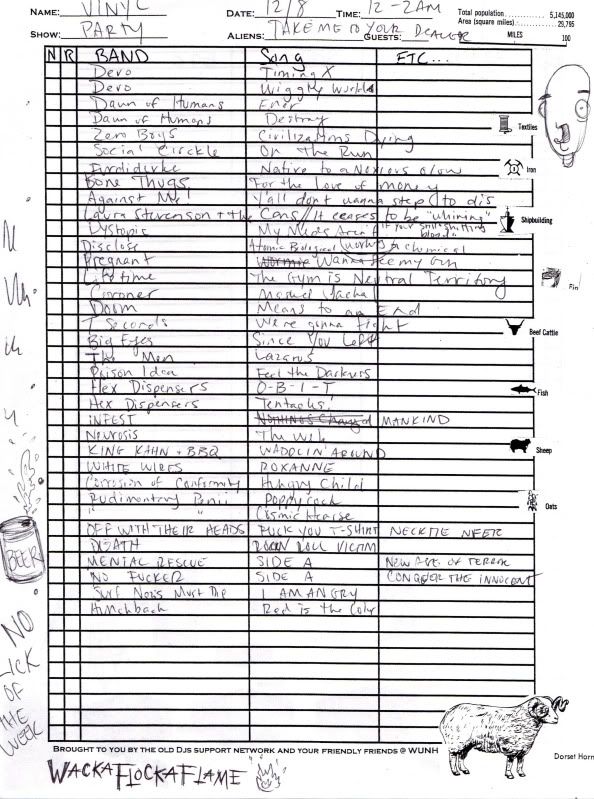 NAME: VINYL DATE: 12/8 TIME: 12-2AM
SHOW: PARTY ALIENS: TAKE ME TO YOUR DEALER GUESTS:
Total population 5,145,000
Area (square miles) 29,795
MILES 100
N R BAND Song ETC...
Devo Timing X
Devo Wiggly World
Dawn of Humans
Dawn of Humans Destroy
Zero Boys Civilizations Dying
Textiles
Social Circkle On The Run
Native to a
Iron
Bone Thugs For the Love of money
Against Me! Y'all don't wanna step to dis
Laura Stevenson + the Cans It ceases to be "whining"
if your still shitting blood
Shipbuilding
Dystopia My Meds Aren't
Disclose Atomic Biological works chemical
Pregnant Wanna see my Gun
Lifetime The Gym is Neutral Territory
Coroner
Doom Means to an End
7 Seconds We're gonna fight
Big Eyes Since You Left
Beef Cattle
The Men Lazarus
Poison Idea Feel the Darkness
Hex Dispensers O-B-I-T
Fish
Hex Dispensers Tentacles
INFEST MANKIND
Neurosis The Web
KING KAHN + BBQ WADDLIN' AROUND
Sheep
WHITE WIRES ROXANNE
Corrosion of Conformity Hungry Child
Rudimentary Peni Poppycock
Oats
" " Cosmic Hearse
OFF WITH THEIR HEADS FUCK YOU T-SHIRT NECKTIE NEER
DEATH ROCK N ROLL VICTIM
MENTAL RESCUE SIDE A NEW AGE OF TERROR
NO FUCKER SIDE A CONQUER THE INNOCENT
Surf Nazis Must Die I AM ANGRY
Hunchback Red is the Color
BEER
NO
LICK
OF
THE
WEEK
BROUGHT TO YOU BY THE OLD DJS SUPPORT NETWORK AND YOUR FRIENDLY FRIENDS @ WUNH
WACKA FLOCKA FLAME
Dorset Horn